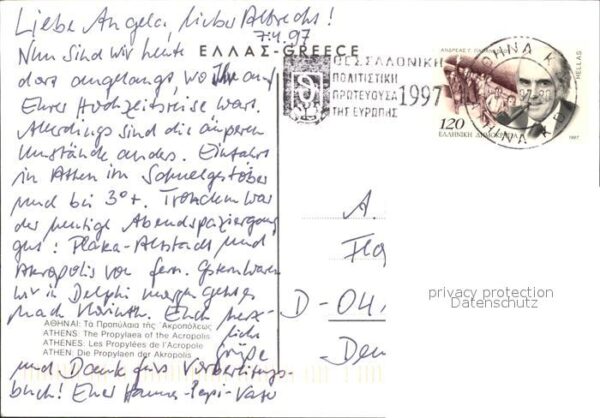 Liebe Angela, lieber Albrecht!
7.4.97
Nun sind wir heute
dort angelangt, wo Ihr auf
Eurer Hochzeitsreise wart.
Allerdings sind die äußeren
Umstände anders. Einfahrt
in Athen im Schneegestöber
und bei 3°+. Trotzdem war
der heutige Abendspaziergang
gut: Plaka-Altstadt und
Akropolis von fern. Gestern waren
wir in Delphi morgen geht es
nach Korinth. Euch herz-
liche
Grüße
und Dank fürs Vorbereitungs-
buch! Euer Hannes-Papi-Vater
ΕΛΛΑΣ-GREECE
ΑΘΗΝΑΙ: Τὰ Προπύλαια τῆς Ἀκροπόλεως
ATHENS: The Propylaea of the Acropolis
ATHENES: Les Propylées de l'Acropole
ATHEN: Die Propylaen der Akropolis
ΘΕΣΣΑΛΟΝΙΚΗ
ΠΟΛΙΤΙΣΤΙΚΗ
ΠΡΩΤΕΥΟΥΣΑ 1997
ΤΗΣ ΕΥΡΩΠΗΣ
ΑΘΗΝΑ Κ
ΑΝΔΡΕΑΣ Γ.
HELLAS
120
ΕΛΛΗΝΙΚΗ ΔΗΜΟΚΡΑΤΙΑ
1997
A.
D-04
privacy protection
Datenschutz